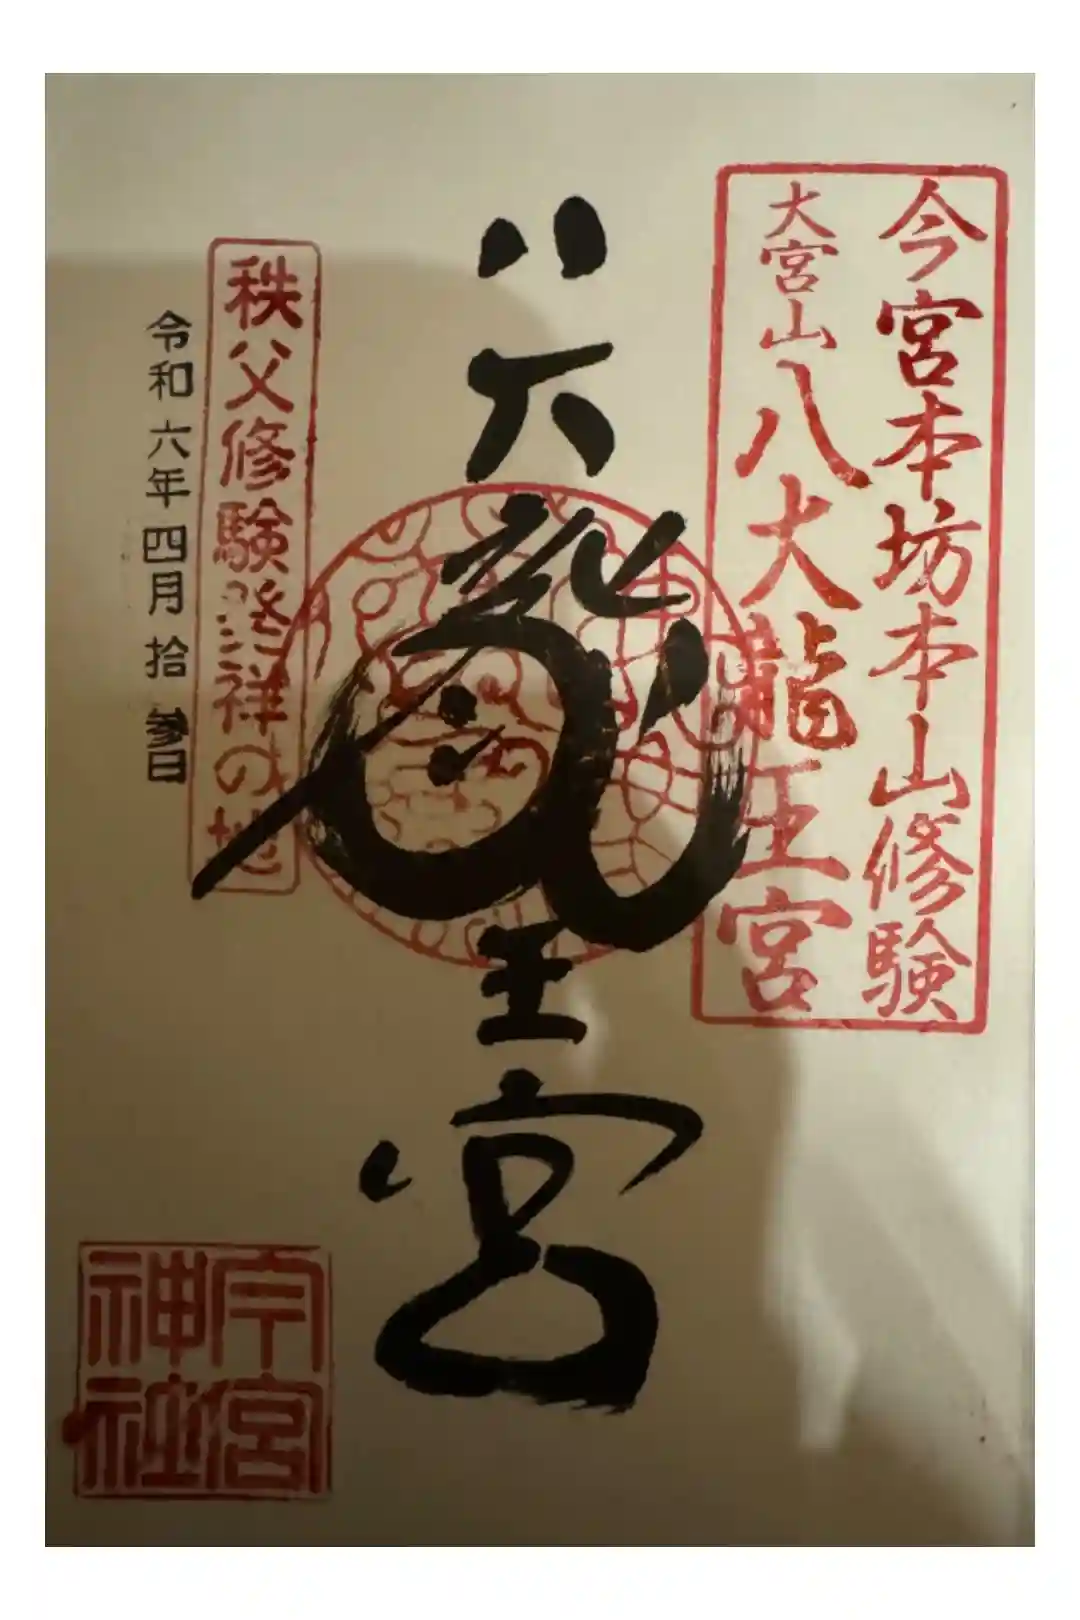 今宮本坊本山修験
大宮山八大龍王宮
八大龍王宮
秩父修験発祥の地
令和六年四月拾参日
今宮
神社